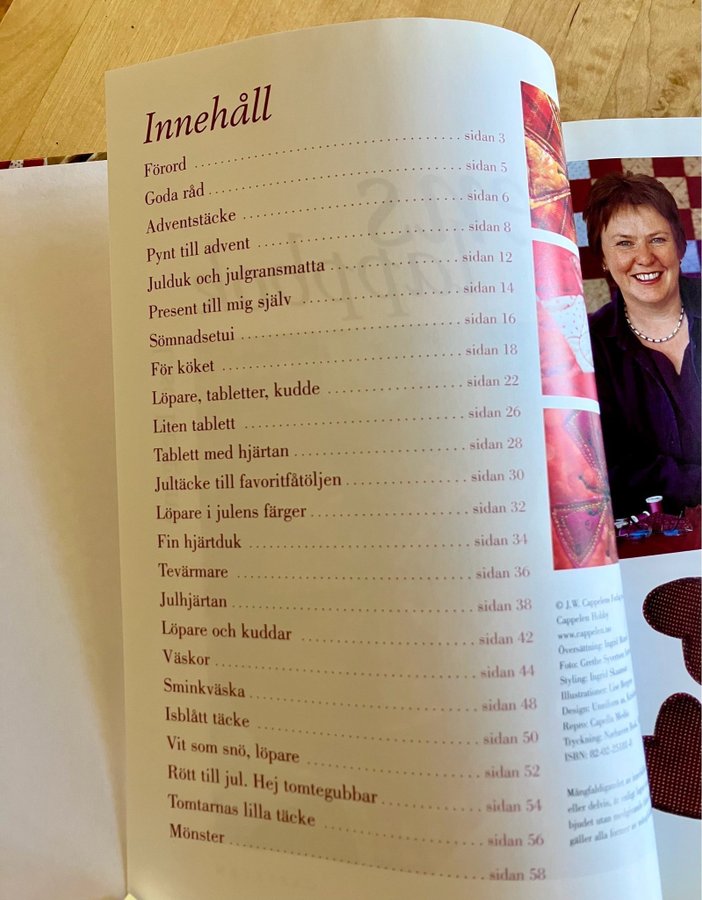 Innehåll
Förord sidan 3
Goda råd sidan 5
Adventstäcke sidan 6
Pynt till advent sidan 8
Julduk och julgransmatta sidan 12
Present till mig själv sidan 14
Sömnadsetui sidan 16
För köket sidan 18
Löpare, tabletter, kudde sidan 22
Liten tablett sidan 26
Tablett med hjärtan sidan 28
Jultäcke till favoritfåtöljen sidan 30
Löpare i julens färger sidan 32
Fin hjärtduk sidan 34
Tevärmare sidan 36
Julhjärtan sidan 38
Löpare och kuddar sidan 42
Väskor sidan 44
Sminkväska sidan 48
Isblått täcke sidan 50
Vit som snö, löpare sidan 52
Rött till jul. Hej tomtegubbar sidan 54
Tomtarnas lilla täcke sidan 56
Mönster sidan 58
© J.W. Cappelens
Cappelen Hobby
www.cappelen.no
Översättning: Ingrid
Foto: Grethe Syvertsen
Styling: Ingrid
Illustrationer: Lise
Design:
Repro: Capella Media
Tryckning:
ISBN:
Mångfaldigandet av
eller delvis, är enligt
bjudet utan
gäller alla former av